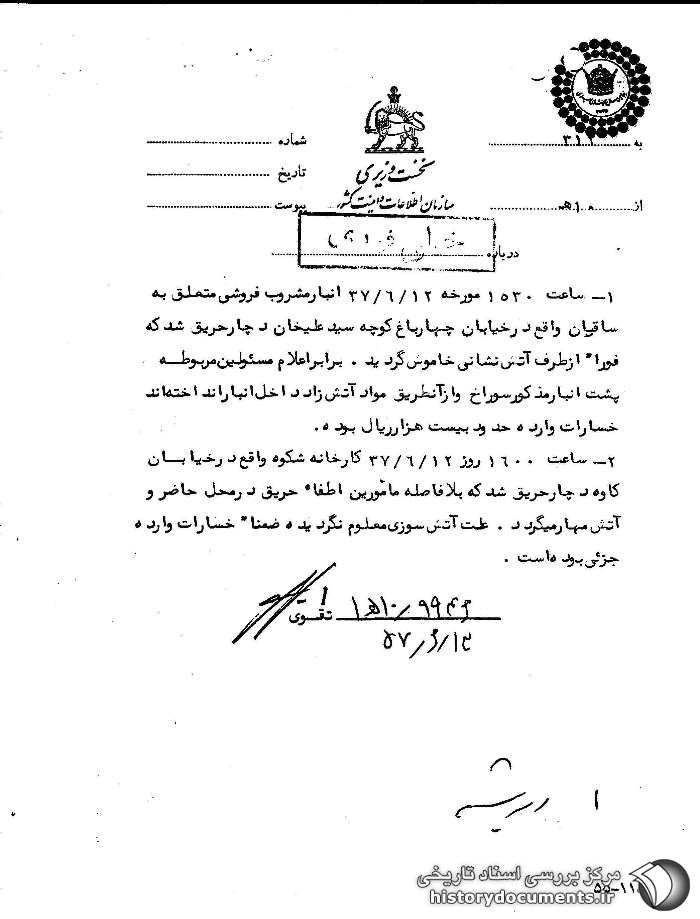 به ۳۱۲
شماره
نخست وزیری
تاریخ
سازمان اطلاعات و امنیت کشور
از ۱۰ه‍
پیوست
درباره
۱- ساعت ۱۵۳۰ مورخه ۳۷/۶/۱۲ انبار مشروب فروشی متعلق به
ساقیان واقع در خیابان چهارباغ کوچه سید علیخان دچار حریق شد که
فوراً از طرف آتش نشانی خاموش گردید . برابر اعلام مسئولین مربوطه
پشت انبار مذکور سوراخ و از آنطریق مواد آتش زا داخل انبار انداخته‌اند
خسارات وارده حدود بیست هزار ریال بوده .
۲- ساعت ۱۶۰۰ روز ۳۷/۶/۱۲ کارخانه شکوه واقع در خیابان
کاوه دچار حریق شد که بلافاصله مأمورین اطفاء حریق در محل حاضر و
آتش مهار میگردد . علت آتش سوزی معلوم نگردیده ضمناً خسارات وارده
جزئی بوده است .
تقوی
۵۷/۶/۱۳
۵۵-۱۱
مرکز بررسی اسناد تاریخی
historydocuments.ir